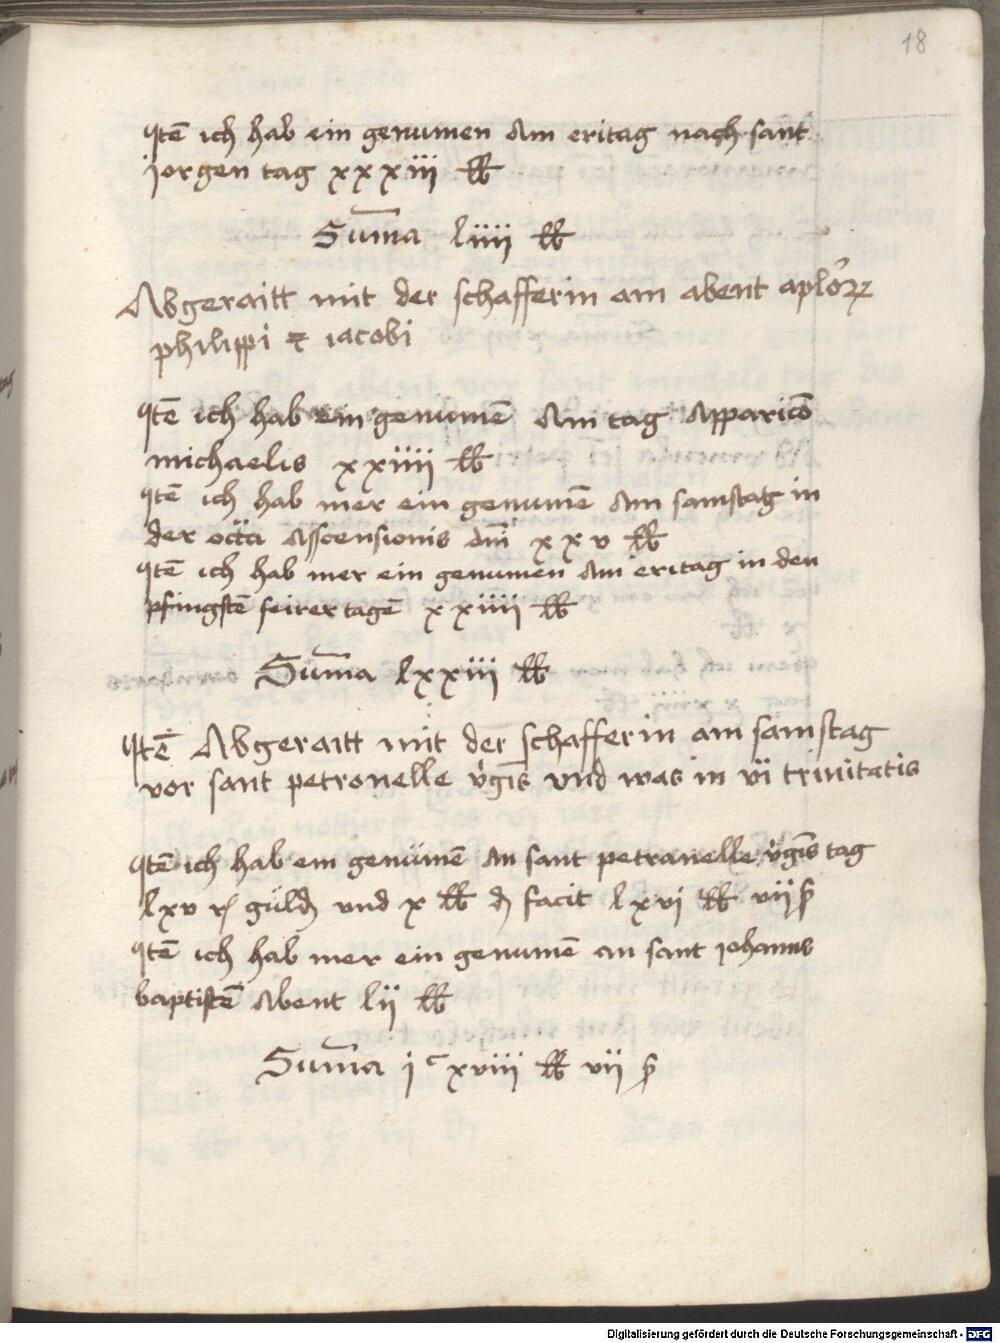 18
Itē ich hab ein genumen Am eritag nach sant
jorgen tag xxxiii ℔
Sum̄a liiii ℔
Abgeraitt mit der schafferin am abent aplōrꝝ
philippi ⁊ iacobi
Itē ich hab ein genumē Am tag Apparicō
michaelis xxiiii ℔
Itē ich hab mer ein genumē Am samstag in
der octā Asscensionis dn̄i xxv ℔
Itē ich hab mer ein genumen Am eritag in den
pfingstē feirer tagē xxiiii ℔
Sum̄a lxxiii ℔
Itē Abgeraitt mit der schafferin am samstag
vor sant petronelle v̓gīs vnd was in vi trinitatis
Itē ich hab ein genumē An sant petranelle v̓gīs tag
lxv rh güldn̄ vnd x ℔ ₰ facit lxvi ℔ vii ß
Itē ich hab mer ein genumē an sant iohanns
baptistē Abent lii ℔
Sum̄a jᶜ xviii ℔ vii ß
Digitalisierung gefördert durch die Deutsche Forschungsgemeinschaft - DFG